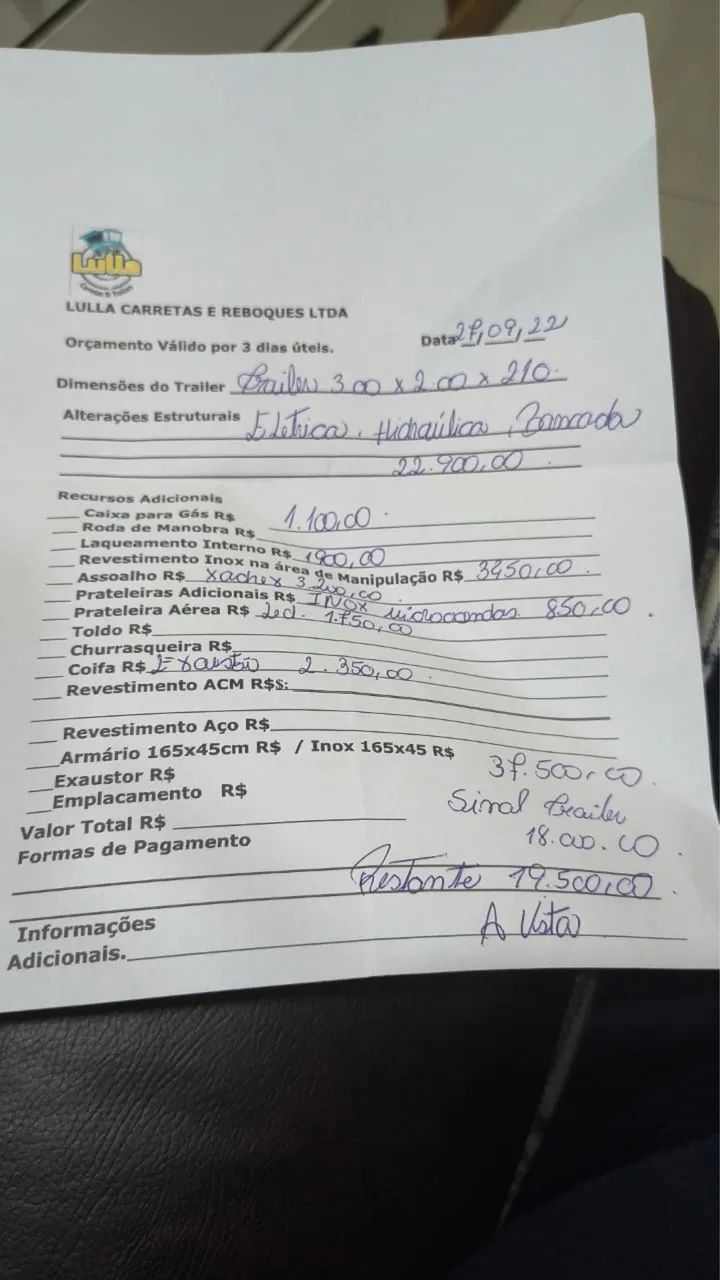 Lulla
Carretas & Trailers
LULLA CARRETAS E REBOQUES LTDA
Orçamento Válido por 3 dias úteis.
Data 27,09,22
Dimensões do Trailer Trailer 3.00 x 2.00 x 210.
Alterações Estruturais Elétrica, Hidraúlica, Bancada
22.900,00
Recursos Adicionais
Caixa para Gás R$ 1.100,00
Roda de Manobra R$
Laqueamento Interno R$ 1900,00
Revestimento Inox na área de Manipulação R$ 3450,00
Assoalho R$ xadrex 3.200,00
Prateleiras Adicionais R$ INOX microondas 850,00
Prateleira Aérea R$ Led. 1.750,00
Toldo R$
Churrasqueira R$
Coifa R$ Exaustão 2.350,00
Revestimento ACM R$S:
Revestimento Aço R$
Armário 165x45cm R$ / Inox 165x45 R$
Exaustor R$
37.500,00
Emplacamento R$
Sinal Trailer
18.000.00
Valor Total R$
Formas de Pagamento
Restante 19.500,00
A Vista
Informações
Adicionais.